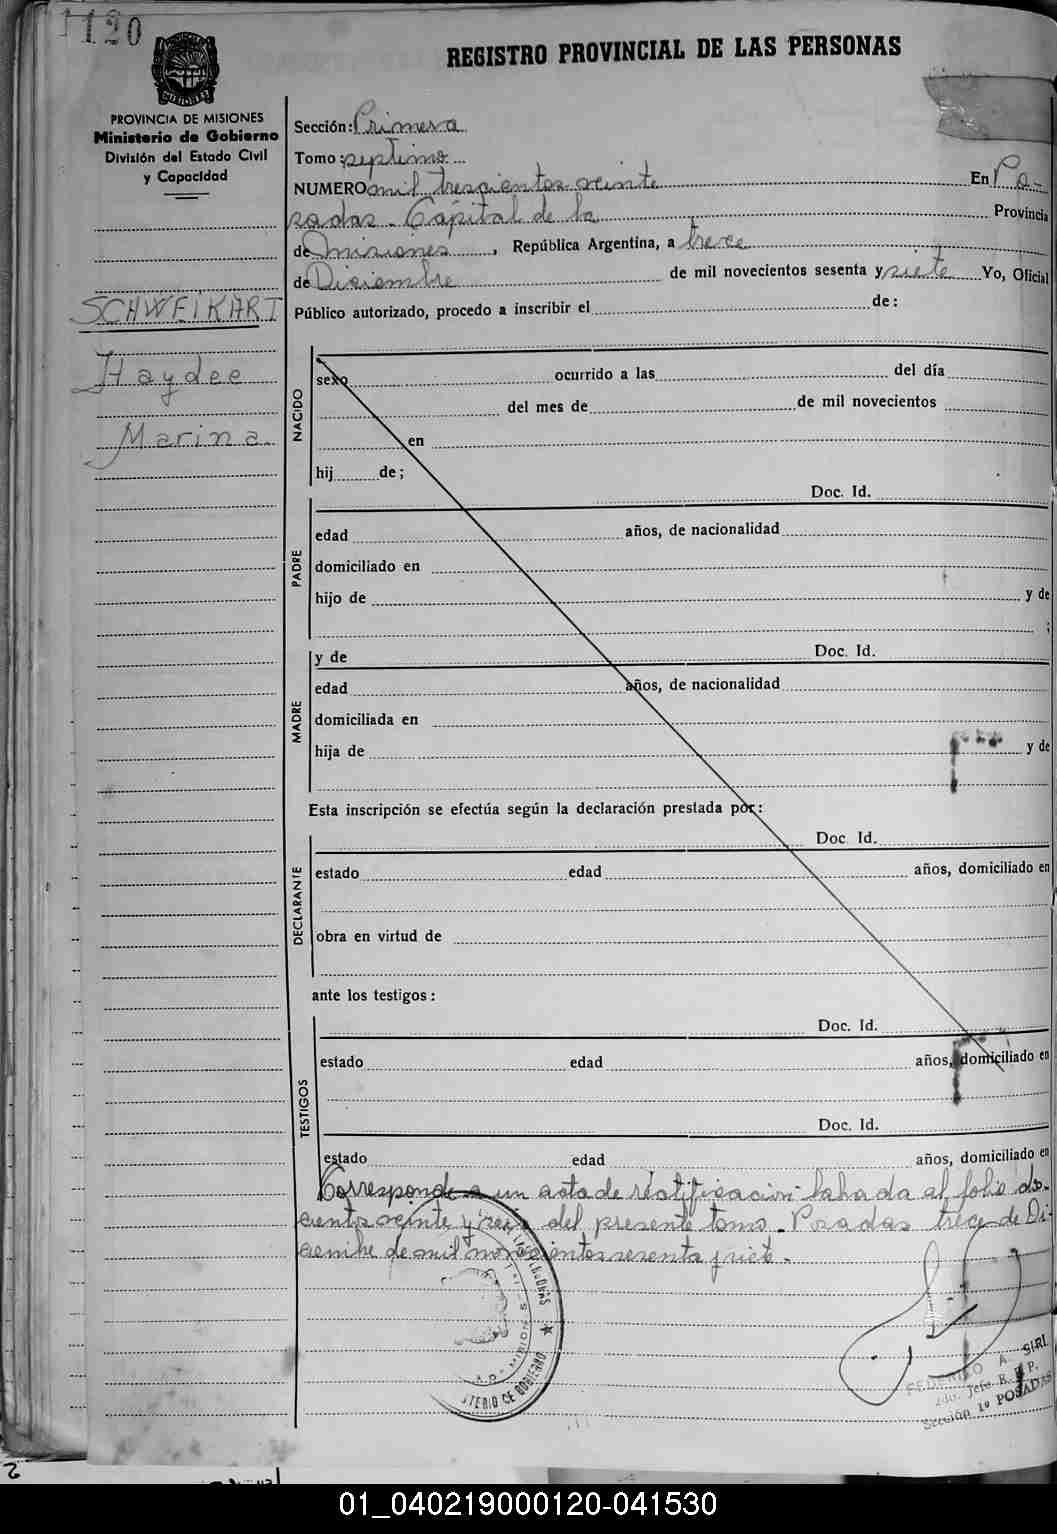 1120
REGISTRO PROVINCIAL DE LAS PERSONAS
MISIONES
PROVINCIA DE MISIONES
Ministerio de Gobierno
División del Estado Civil
y Capacidad
Sección: Primera
Tomo: septimo
NUMERO mil trescientos veinte En Po-
sadas - Capital de la Provincia
de Misiones, República Argentina, a trece
de Diciembre de mil novecientos sesenta y siete Yo, Oficial
Público autorizado, procedo a inscribir el de:
SCHWEIKART
Haydee
Marina
NACIDO
sexo ocurrido a las del día
del mes de de mil novecientos
en
hij de;
Doc. Id.
PADRE
edad años, de nacionalidad
domiciliado en
hijo de y de
;
y de Doc. Id.
MADRE
edad años, de nacionalidad
domiciliada en
hija de y de
Esta inscripción se efectúa según la declaración prestada por:
Doc. Id.
DECLARANTE
estado edad años, domiciliado en
obra en virtud de
ante los testigos:
Doc. Id.
TESTIGOS
estado edad años, domiciliado en
Doc. Id.
estado edad años, domiciliado en
Corresponde a un acta de rectificación labrada al folio dos-
cientos veinte y seis del presente tomo. Posadas trece de Di-
ciembre de mil novecientos sesenta y siete.
FEDERICO A. SIRI
2do. Jefe R. P. P.
Sección 1º POSADAS
01_040219000120-041530